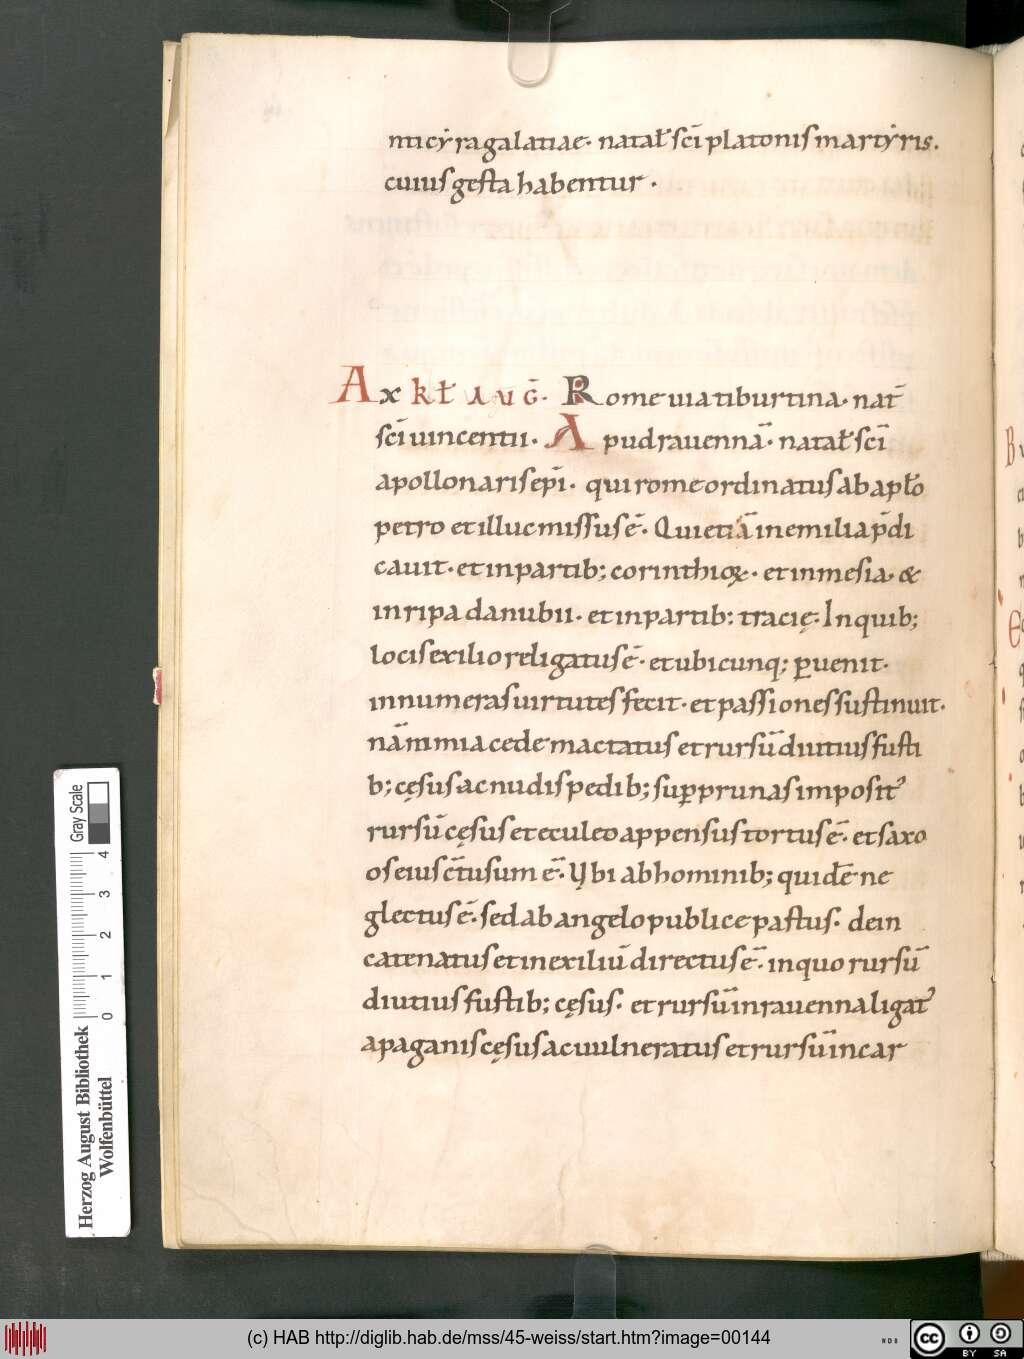 nticẏra galatiae· natał sc̄i platonis martẏris.
cuius gesta habentur·
A x kł auḡ. Rome uia tiburtina· nat̄
sc̄i uincentii· Apud rauennā· natał sc̄i
apollonaris ep̄i· qui rome ordinatus ab apło
petro et illuc missus ē· Qui etiā in emilia p̄di
cauit· et in partib; corinthioꝝ· et in mesia· &
in ripa danubii· et in partib: tracię· In quib;
locis exilio religatus ē· et ubicunq; ꝑuenit·
innumeras uirtutes fecit· et passiones sustinuit·
nā nimia cede mactatus et rursū diutius fusti
b; cęsus ac nudis pedib; suꝑ prunas imposit᾽
rursū cęsus et eculeo appensus tortus ē· et saxo
os eius c̄tusum ē· Ybi ab hominib; quidē ne
glectus ē· sed ab angelo publice pastus· dein
catenatus et in exiliū directus ē· in quo rursū
diutius fustib; cęsus· et rursū in rauenna ligat᾽
a paganis cęsus ac uulneratus et rursū in car
Herzog August Bibliothek
Wolfenbüttel
0 1 2 3 4
Gray Scale
(c) HAB http://diglib.hab.de/mss/45-weiss/start.htm?image=00144
WDB
cc BY SA